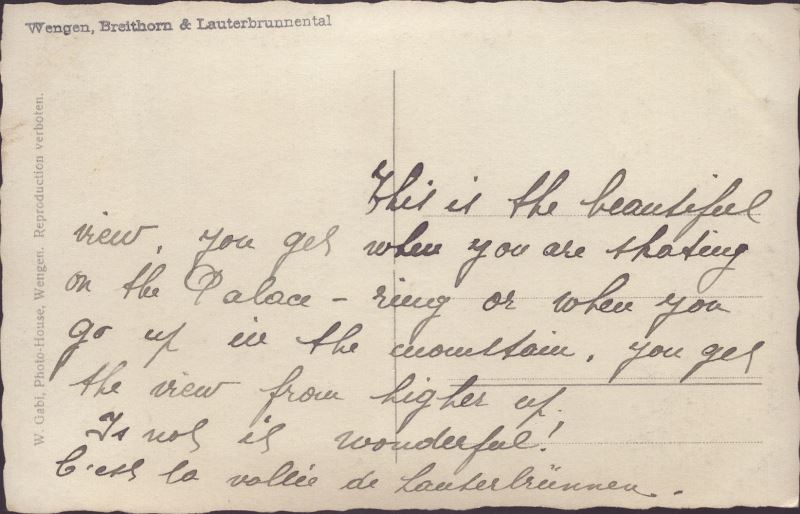 Wengen, Breithorn & Lauterbrunnental
W. Gabi, Photo-House, Wengen. Reproduction verboten.
This is the beautiful
view, you get when you are skating
on the Palace - ring or when you
go up in the mountain, you get
the view from higher up.
Is not it wonderful!
C'est la vallée de Lauterbrünnen.